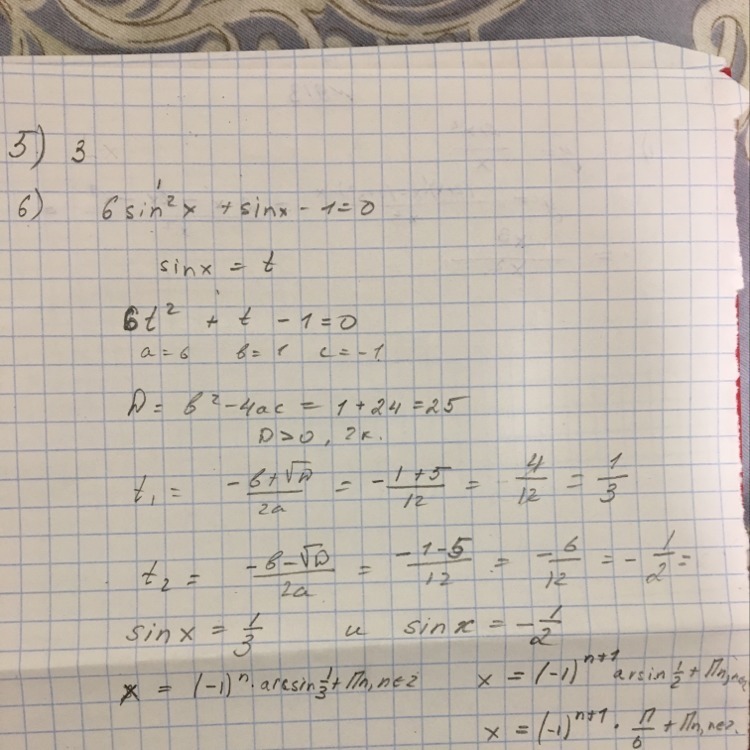 5) 3
6) 6sin²x + sinx - 1 = 0
sinx = t
6t² + t - 1 = 0
a = 6 в = 1 c = -1
D = в² - 4ac = 1 + 24 = 25
D > 0, 2к.
t₁ = (-в + √D)/(2a) = (-1 + 5)/12 = 4/12 = 1/3
t₂ = (-в - √D)/(2a) = (-1 - 5)/12 = -6/12 = -1/2 =
sinx = 1/3 и sinx = -1/2
x = (-1)ⁿ · arcsin 1/3 + Пn, n∈Z x = (-1)ⁿ⁺¹ arsin 1/2 + Пn, n∈Z
x = (-1)ⁿ⁺¹ · П/6 + Пn, n∈Z.